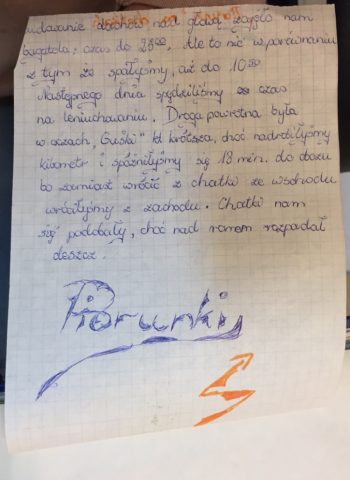 udawanie duchów nad głową zajęło nam
bagatela: czas do 23⁰⁰. Ale to nic w porównaniu
z tym że spałyśmy, aż do 10.⁰⁰
Następnego dnia spędziliśmy czas
na leniuchowaniu. Droga powrotna była
w oczach „Guśki” krótsza, choć nadrobiłyśmy
kilometr i spóźniłyśmy się 13 min. do
bo zamiast wrócić z chatki ze wschodu
wróciłyśmy z zachodu. Chatki nam
się podobały, choć nad ranem rozpadał
deszcz.
Piorunki